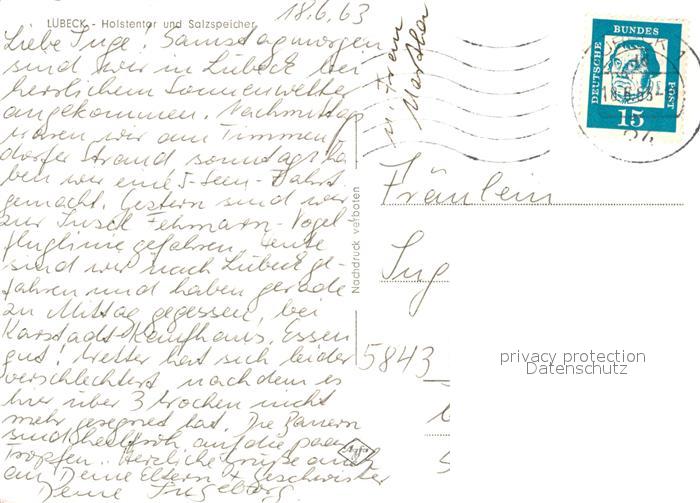 LÜBECK - Holstentor und Salzspeicher
18.6.63
Liebe Inge! Samstagmorgen
sind wir in Lübeck bei
herrlichem Sonnenwetter
angekommen. Nachmittag
waren wir am Timmen
dorfer Strand sonntags ha
ben wir eine 5-Seen-Fahrt
gemacht. Gestern sind wir
zur Insel Fehmarn-Vogel
fluglinie gefahren, heute
sind wir nach Lübeck ge-
fahren und haben gerade
zu Mittag gegessen, bei
Karstadt-Kaufhaus. Essen
gut! Wetter hat sich leider
verschlechtert, nachdem es
hier über 3 Wochen nicht
mehr geregnet hat. Die Bauern
sind heilfroh auf die paar
Tropfen. Herzliche Grüße auch
an Deine Eltern & Geschwister
Deine Ingeborg
u. Frau
Nachdruck verboten
Agfa
DEUTSCHE
BUNDES
POST
15
Fräulein
Ing
5843
privacy protection
Datenschutz